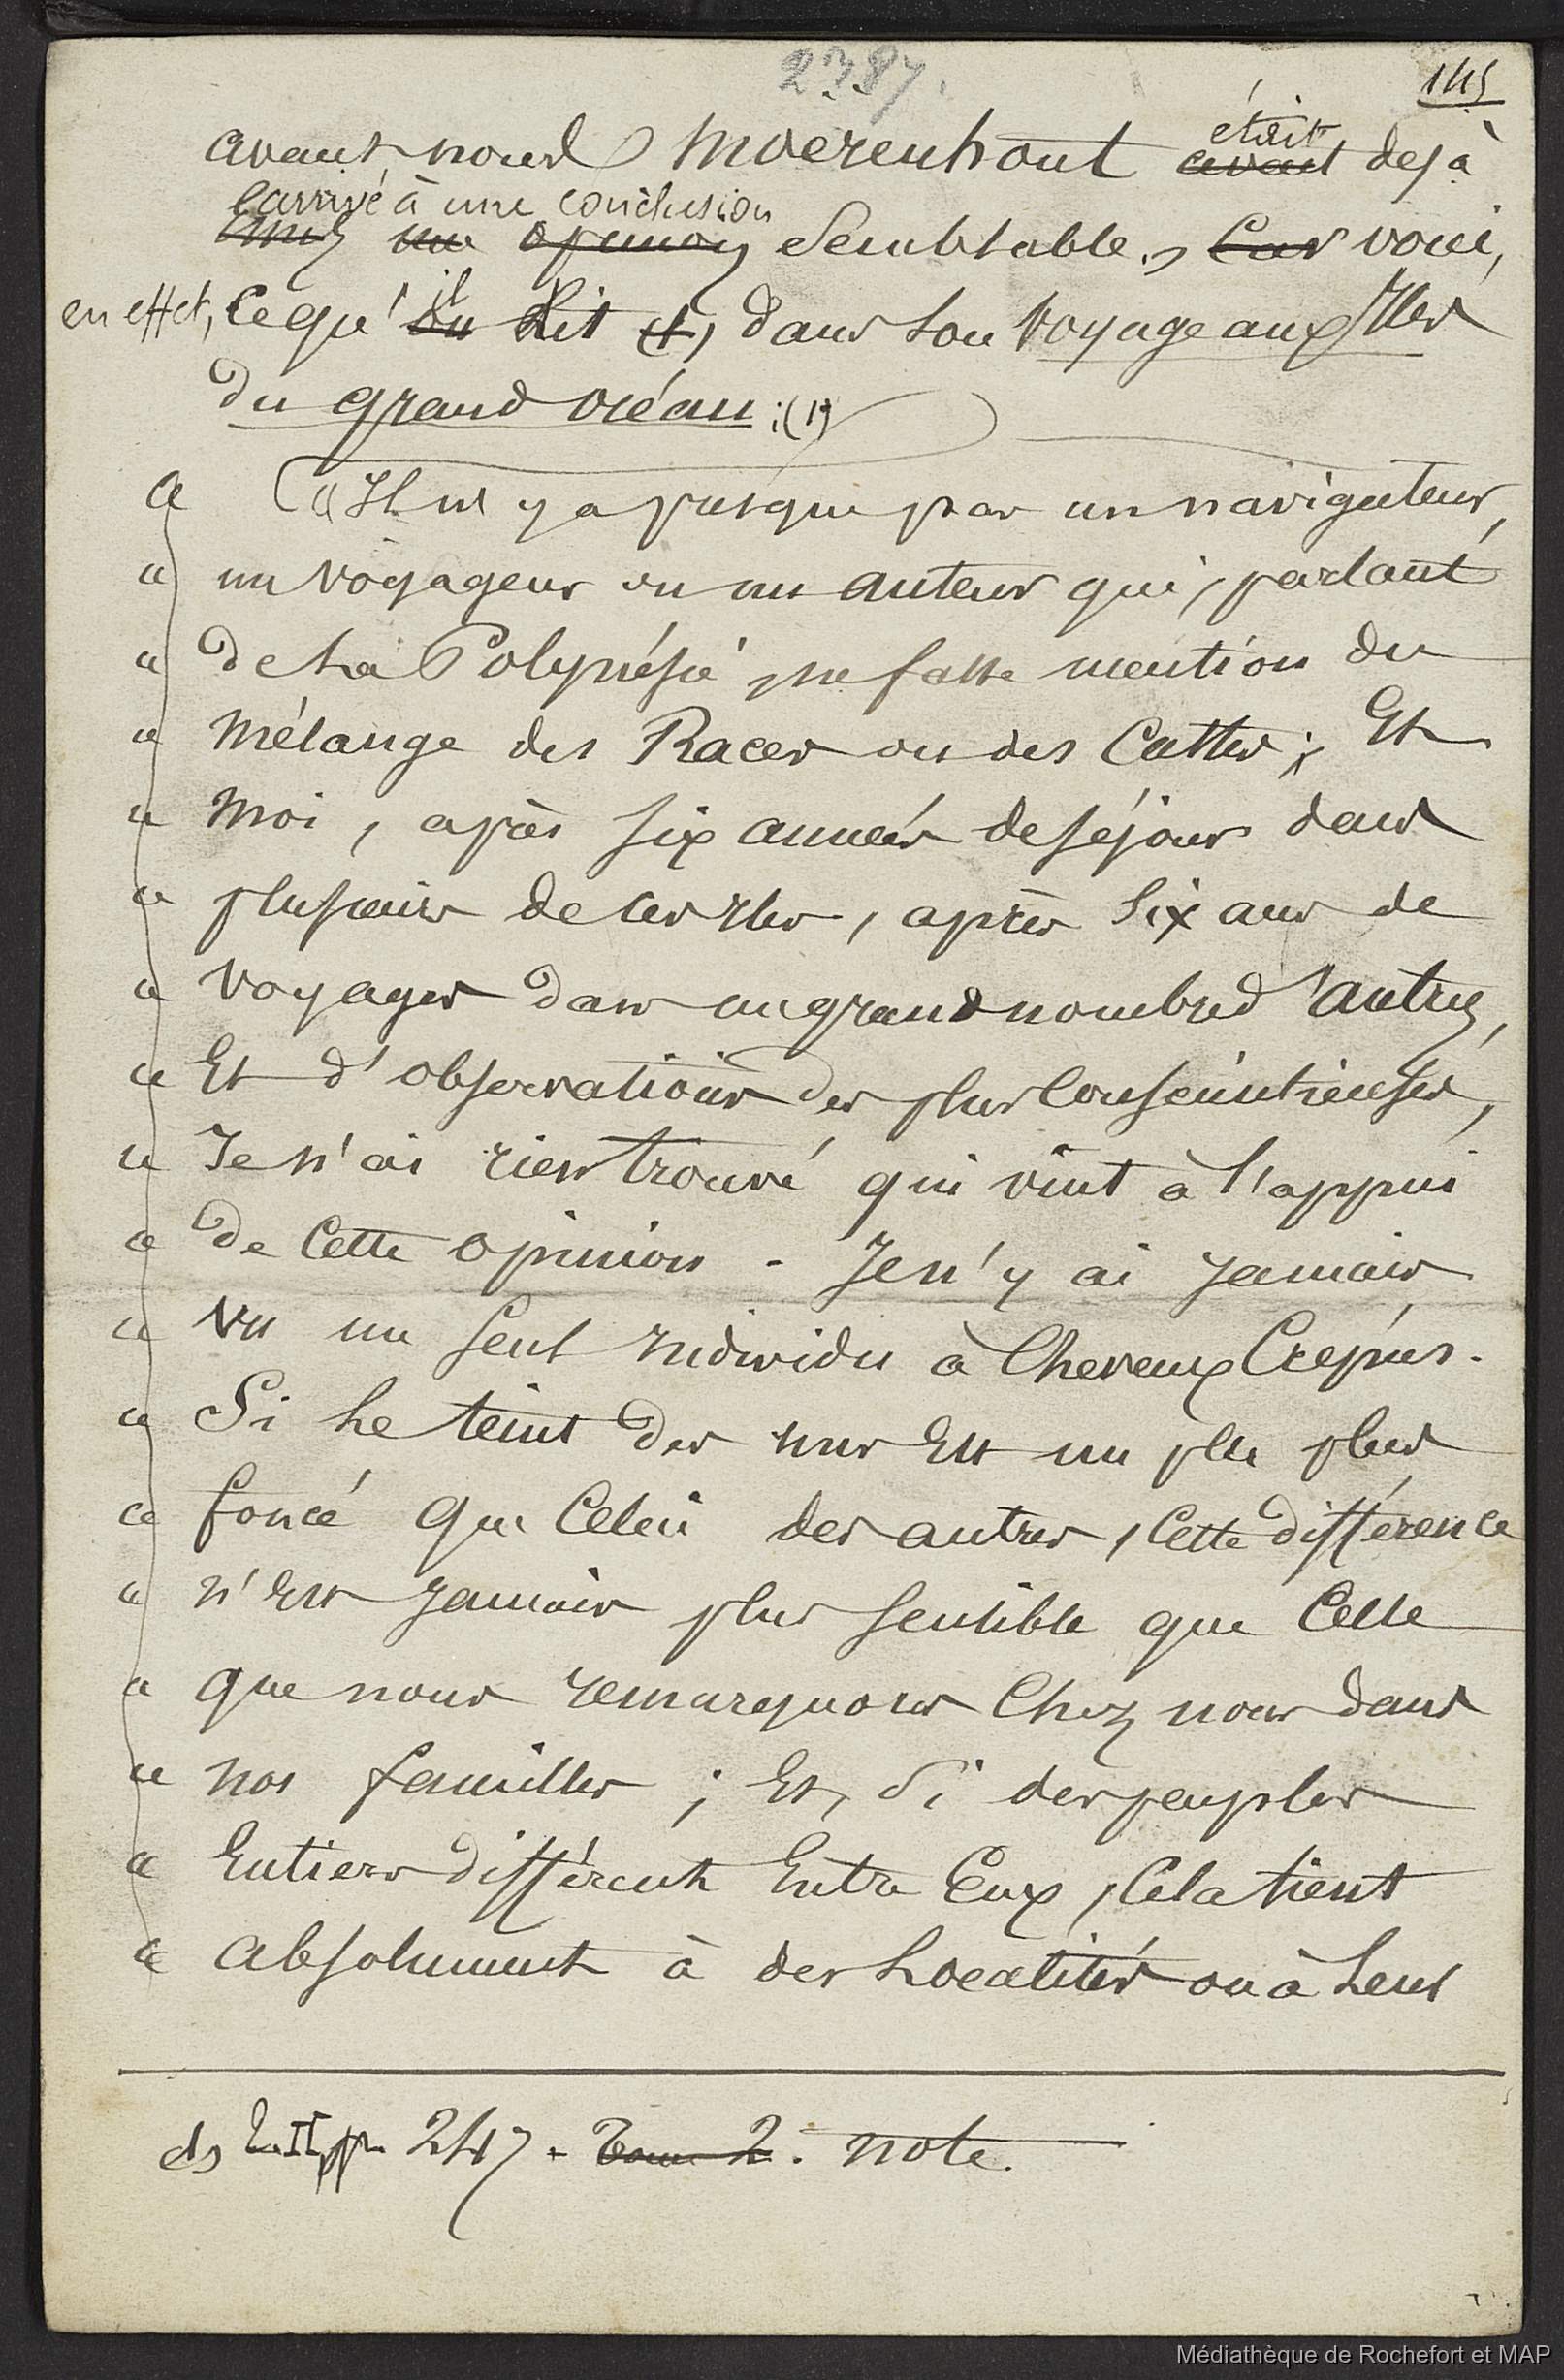 2387.
145
avant nous Moerenhout était avait déjà
arrivé à une conclusion
émis une opinion Semblable, Car voici,
en effet, ce qu'il on lit (1), dans son Voyage aux Iles
du grand océan : (1)
« « Il n'y a presque pas un navigateur,
« un voyageur ou un auteur qui, parlant
« de la Polynésie, ne fasse mention du
« Mélange des Races ou des Castes ; Et
« Moi, après six années de séjour dans
« plusieurs de ces Iles, après six ans de
« voyages dans un grand nombre d'autres,
« Et d'observations des plus Consciencieuses,
« Je n'ai rien trouvé qui vint à l'appui
« de Cette opinion. Je n'y ai Jamais
« Vu un seul Individu à Cheveux Crépus.
« Si le teint des uns Est un peu plus
« foncé que Celui des autres, Cette différence
« n'Est Jamais plus sensible que Celle
« que nous remarquons Chez nous dans
« nos familles ; Et, Si des peuples
« Entiers diffèrent Entre Eux, Cela tient
« absolument à des Localités ou à Leur
T. II, p. 247. Tome 2. note.
Médiathèque de Rochefort et MAP